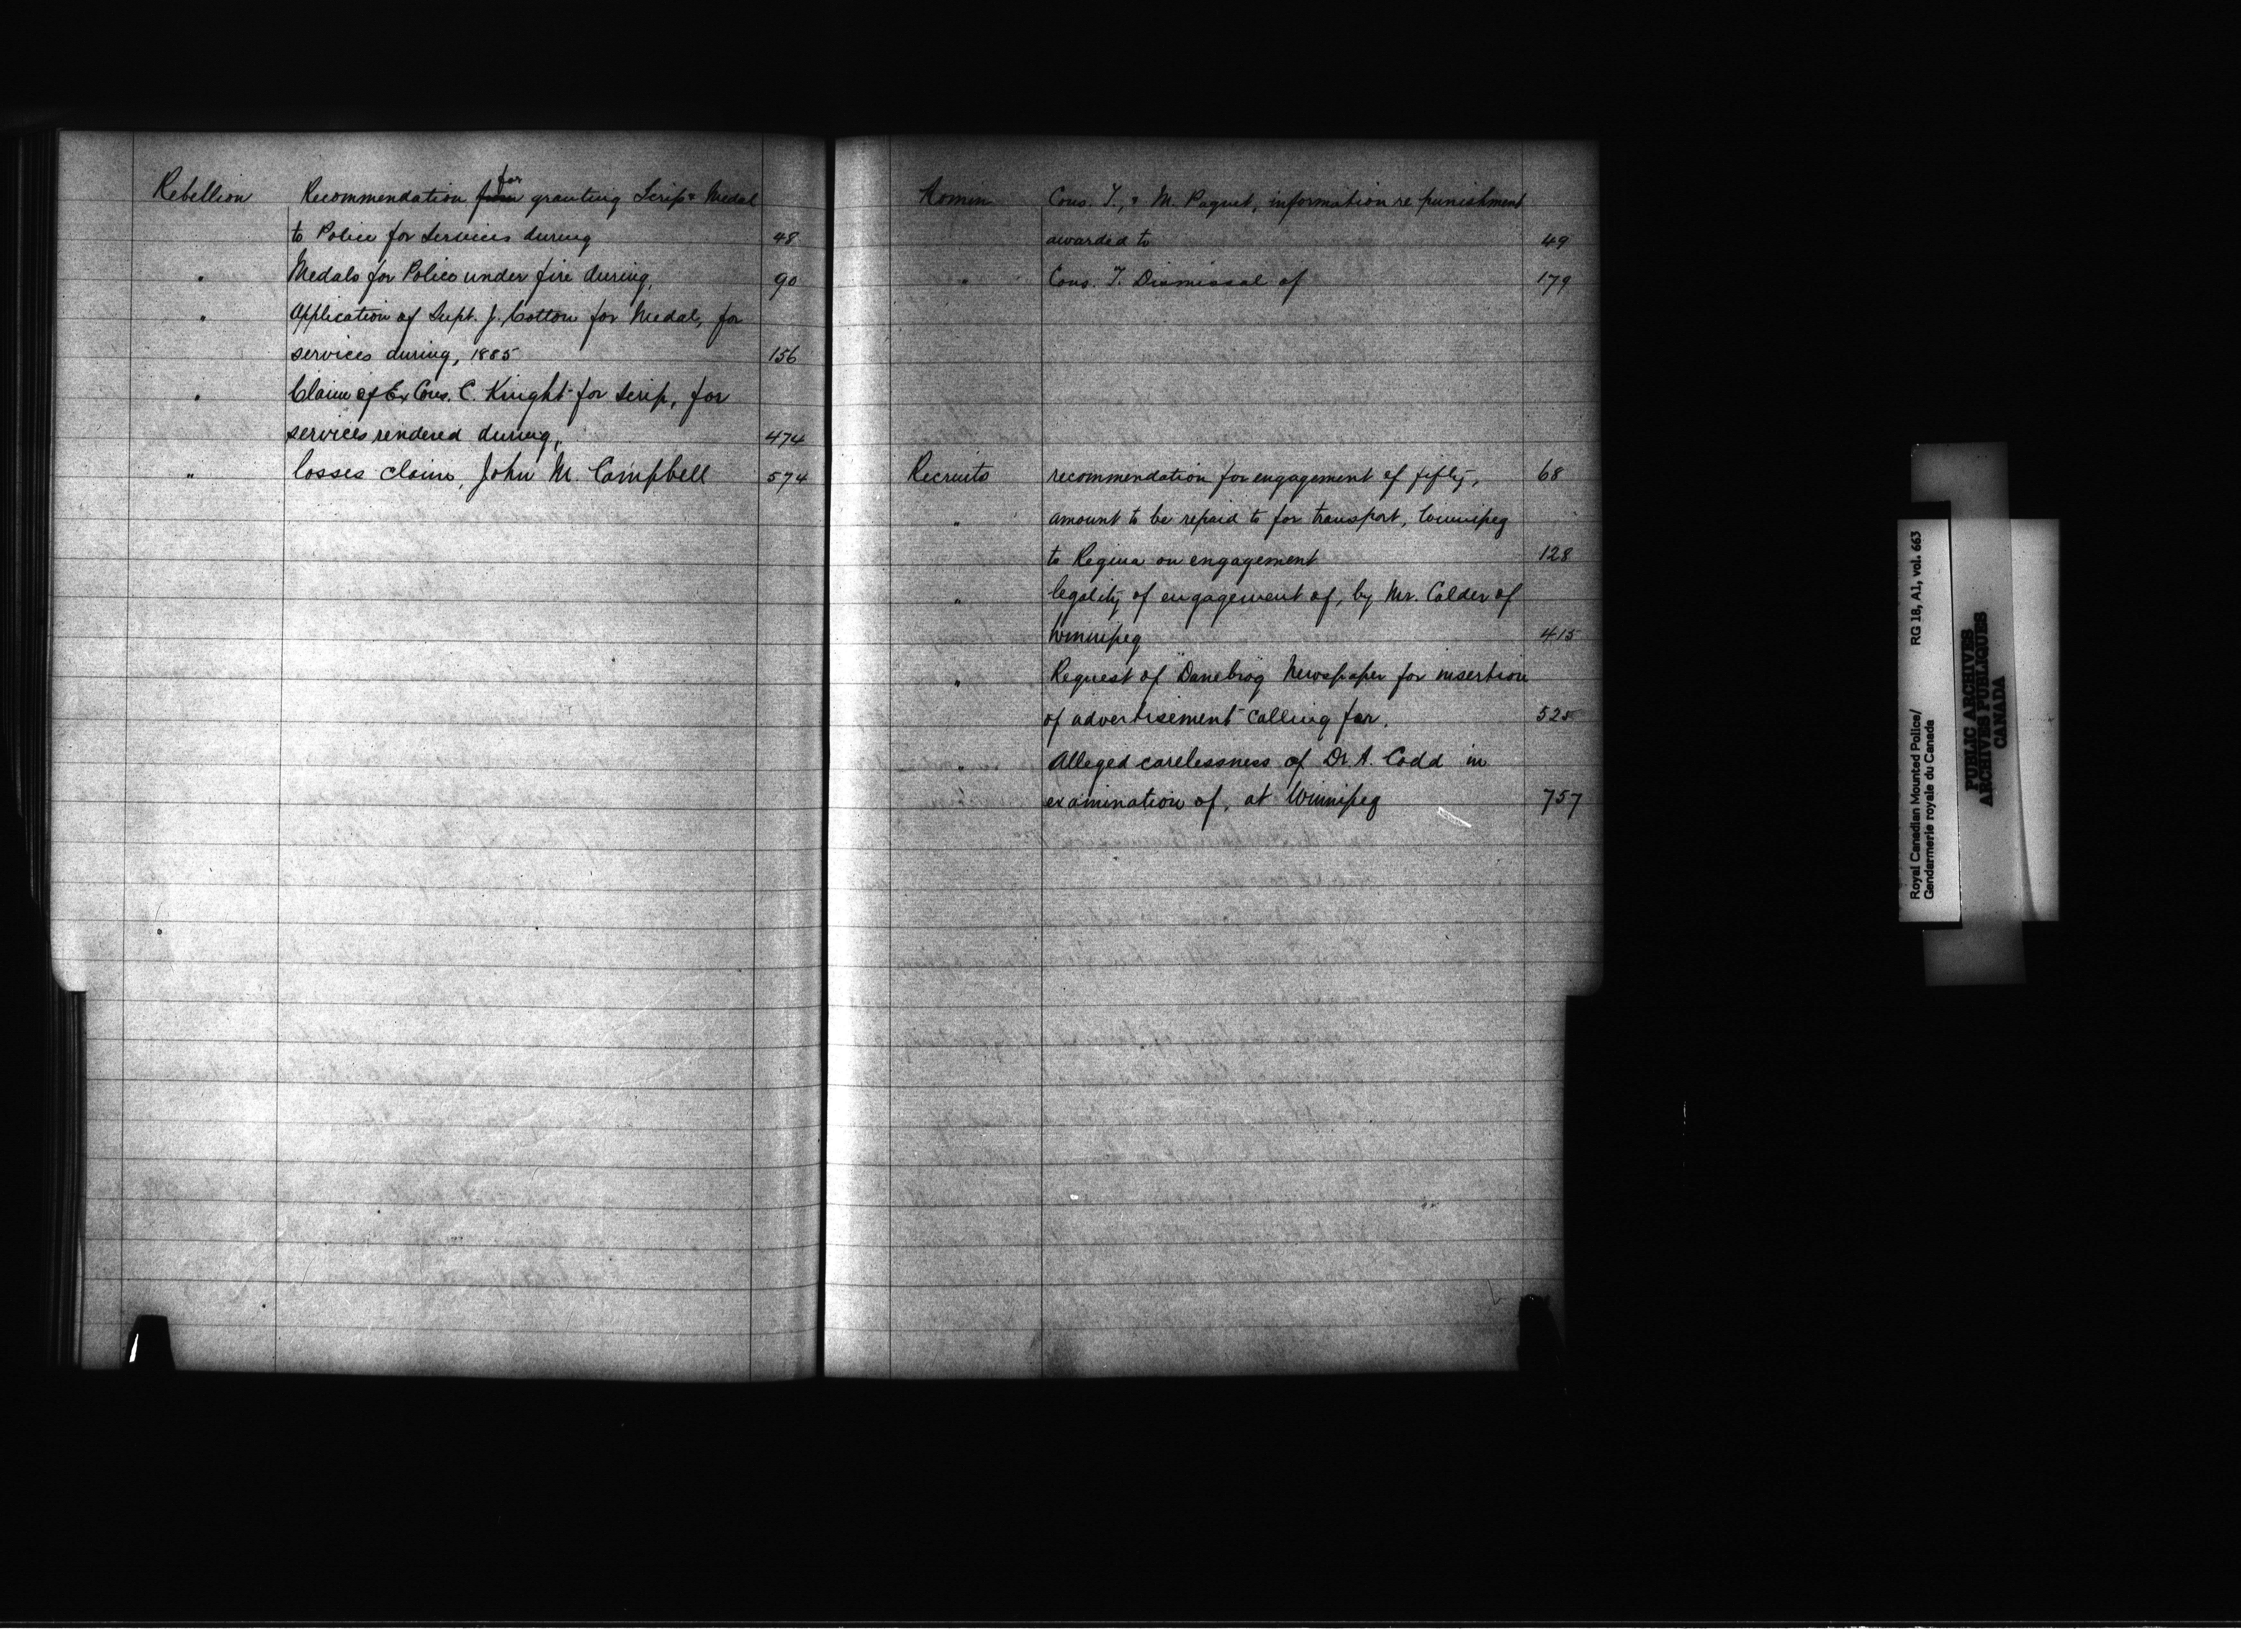 Rebellion Recommendation from for granting Scrip & Medal
to Police for services during 48
" Medals for Police under fire during, 90
" Application of Supt. J. Cotton for Medal, for
services during, 1885 156
" Claim of Ex Cons. C. Knight for Scrip, for
services rendered during, 474
" losses claim, John M. Campbell 574
Cons. T., & M. Paquet, information re punishment
awarded to 49
" Cons. T. Dismissal of 179
Recruits recommendation for engagement of fifty, 68
" amount to be repaid to for transport, Winnipeg
to Regina on engagement 128
" legality of engagement of, by Mr. Calder of
Winnipeg 415
" Request of "Danebrog" Newspaper for insertion
of advertisement calling for. 525
" Alleged carelessness of Dr A. Codd in
examination of, at Winnipeg 757
Royal Canadian Mounted Police/ RG 18, A1, vol. 663
Gendarmerie royale du Canada
PUBLIC ARCHIVES
ARCHIVES PUBLIQUES
CANADA